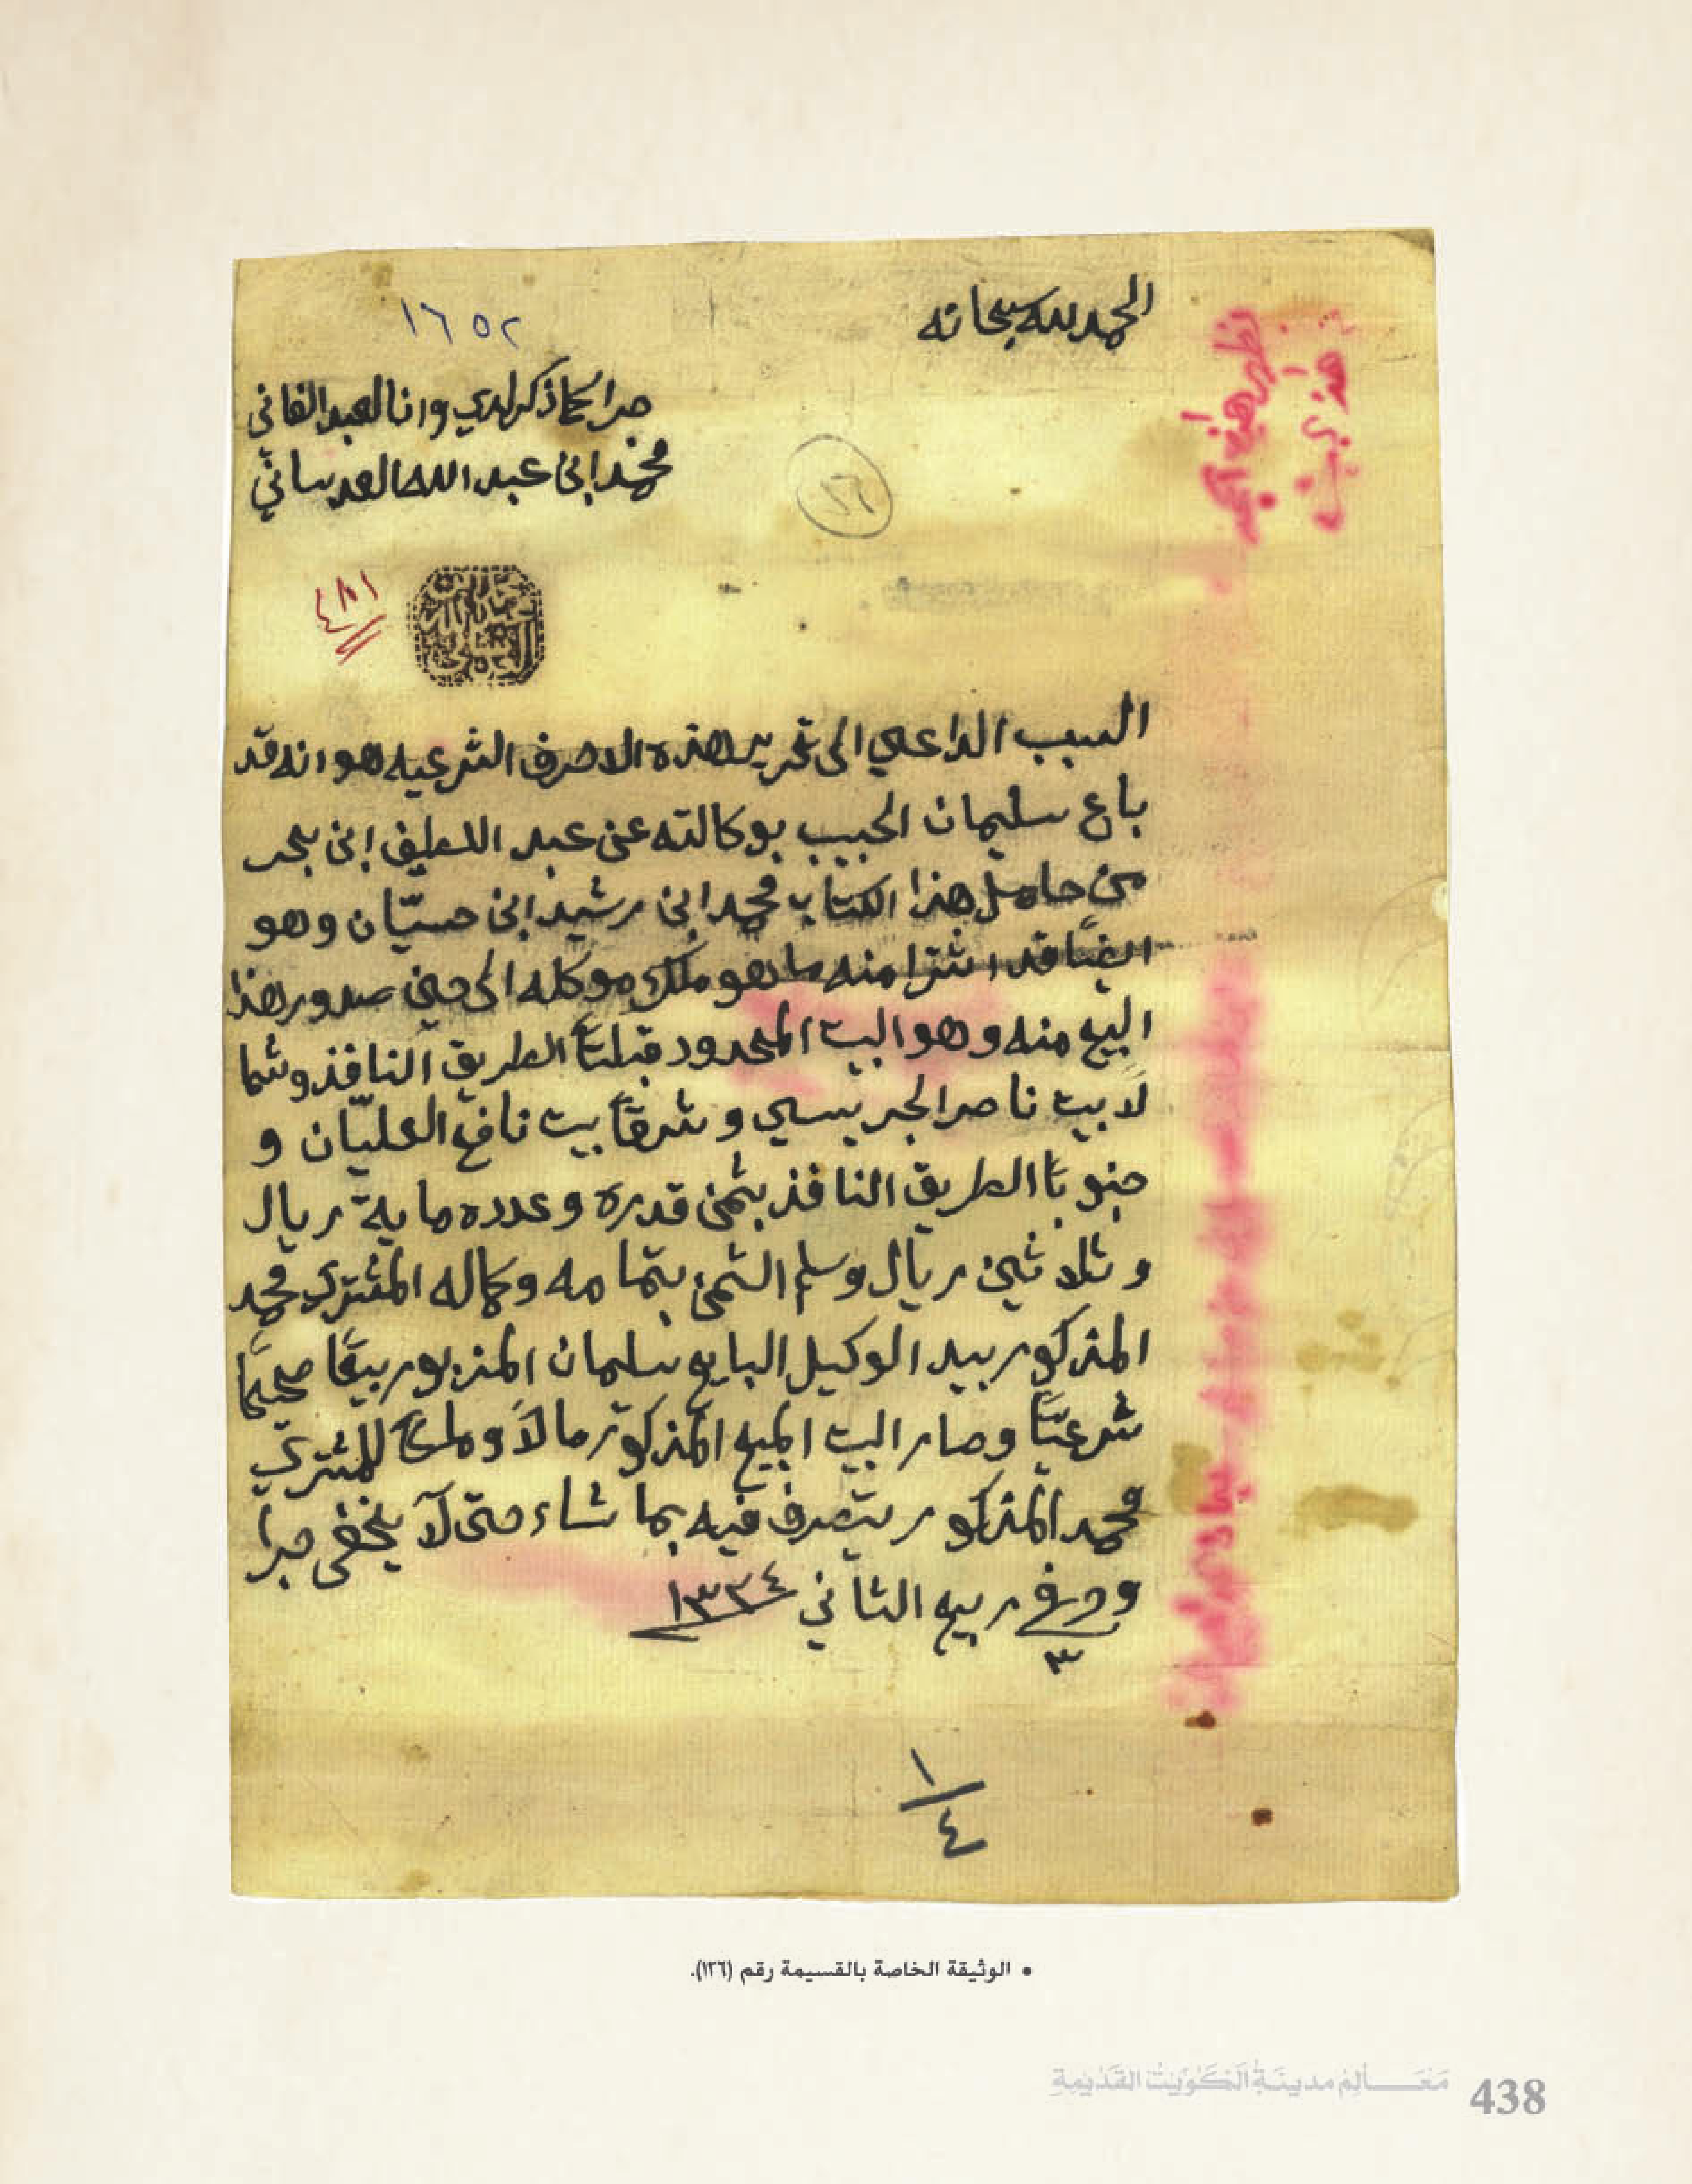 الحمد لله سبحانه
١٦٥٢
جرا كما ذكر لدي وانا العبد الفاني
محمد ابن عبد الله العدساني
٢٦
٤٨١
السبب الداعي الى تحرير هذه الاحرف الشرعيه هو انه قد
باع سليمان الحبيب بوكالته عن عبد اللطيف ابن بحر
من حامل هذا الكتاب محمد ابن رشيد ابن حسيّان وهو
ايضًا قد اشترا منه ما هو ملك موكله الى حين صدور هذا
البيع منه وهو البيت المحدود قبلتًا الطريق النافذ وشما
لاً بيت ناصر الجريسي وشرقاً بيت نافع العليّان و
جنوبًا الطريق النافذ بثمن قدره وعدده ماية ريال
وثلاثين ريال وسلم الثمن بتمامه وكماله المشتري محمد
المذكور بيد الوكيل البايع سليمان المزبور بيعًا صحيحًا
شرعيًا وصار البيت المبيع المذكور مالاً وملكاً للمشتري
محمد المذكور يتصرف فيه بما شاء حتى لا يخفى جرا
وحرر في ربيع الثاني ١٣٣٤
٣
١
٤
• الوثيقة الخاصة بالقسيمة رقم (١٢٦).
مَعَـالِمُ مدينَةِ الكُوَيْت القَدْيمَةِ
438